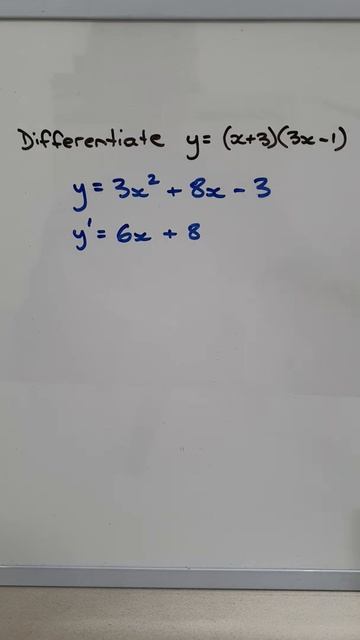 Differentiate y= (x+3)(3x-1)
y= 3x² + 8x - 3
y'= 6x + 8